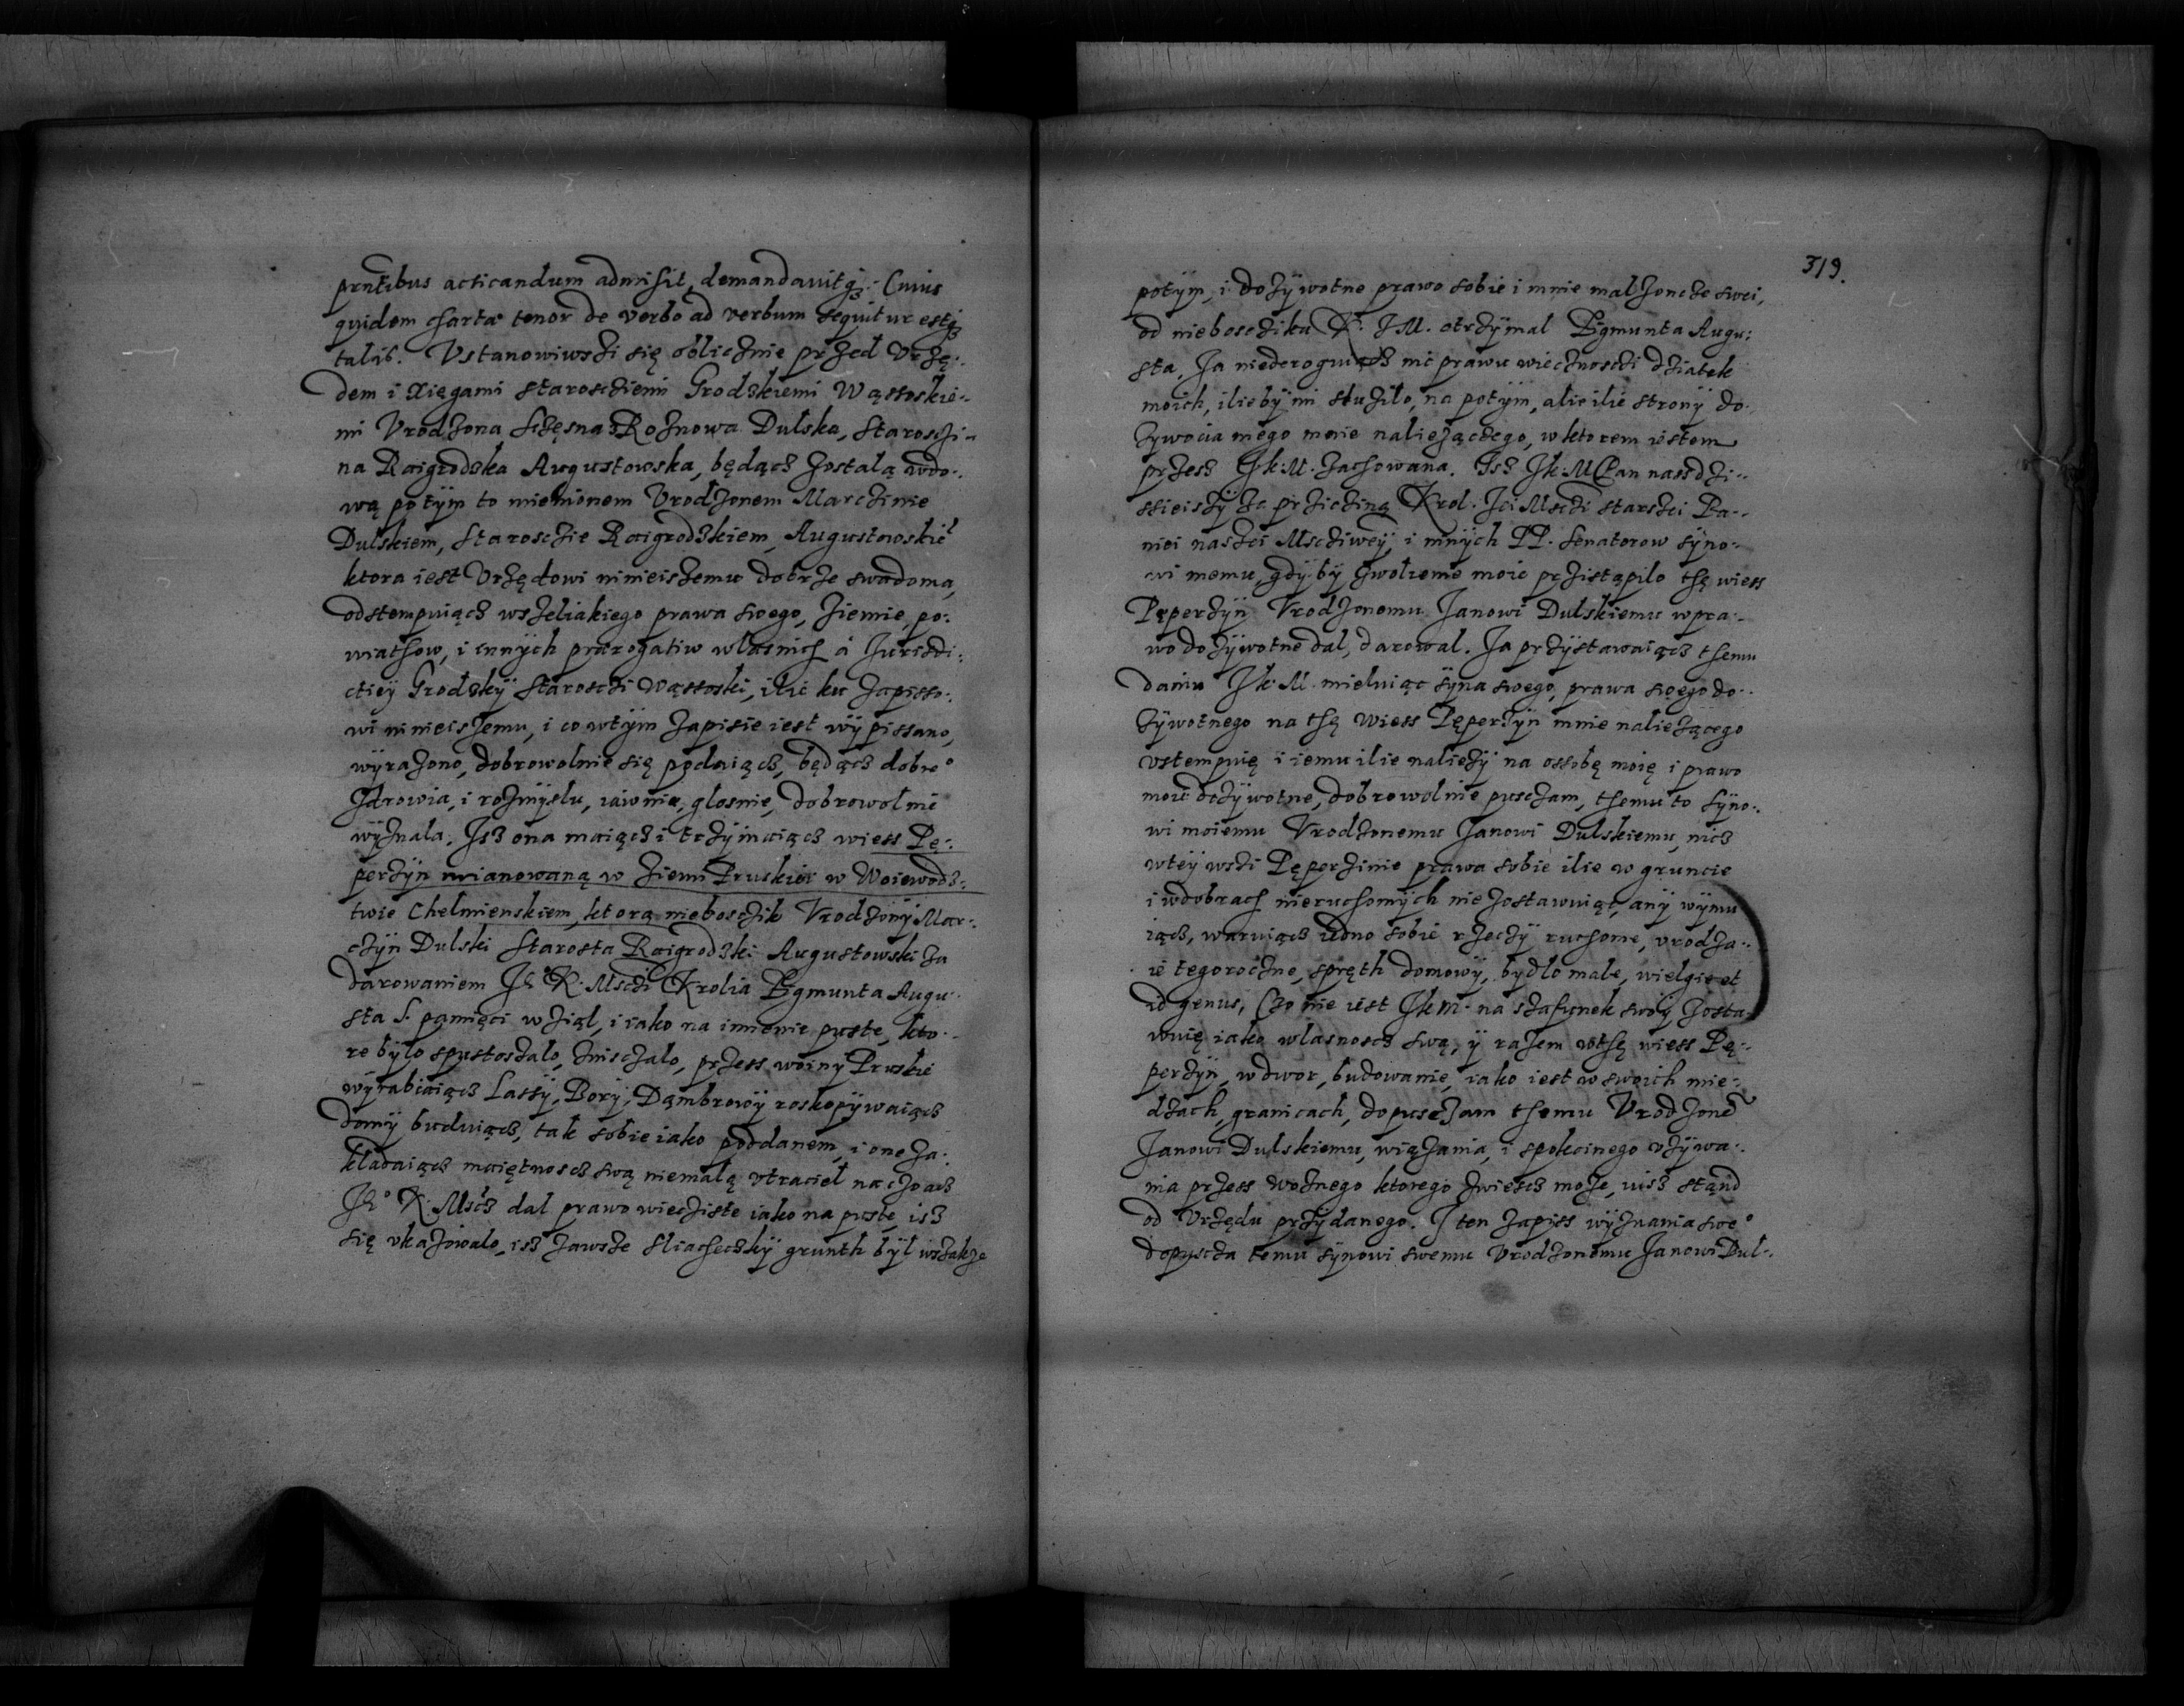 prntibus acticandum admisit, demandavitq3. Cuius
quidem charta tenor de verbo ad verbum sequitur estq3
talis. Vstanowiwszi się oblicznie przed Vrzę:
dem i Xięgami staroscziemi Grodskiemi Wąssoskie-
mi Vrodzona Sczęsna Roznowa Dulska, starosczi-
na Raigrodska Augustowska, będącz zostalą wdo-
wą potÿm to mienionem Vrodzonem Marczinie
Dulskiem, Starosczie Raigrodskiem, Augustowskie
ktora iest Vrzędowi ninieiszemu dobrze swadoma,
odstempuiącz wszeliakiego prawa swego, Ziemie, po:
wiathow, i innÿch prarogatiw wlasnich á Jurisdi:
ctieÿ Grodskÿ Starosczi Wąssoski, ilie ku zapisso:
wi ninieiszemu, i co wtÿm zapisie iest wÿpissano,
wÿrazono, dobrowolnie się pgdaiącz, będącz dobre°
Zdrowia, i rozmÿslu, iáwnie, glosnie, dobrowolnie
wÿznala. Isz ona maiącz i trzÿmaiącz wiess Pę:
perzÿn mianowaną w Ziemi Pruskiei w Woiewodz:
twie Chelmienskiem, ktorą nieboszczik Vrodzonÿ Mar:
czÿn Dulski Starosta Raigrodski Augustowski za
darowaniem Je° K. Msczi Krolia Zigmunta Augu:
sta S. pamięci wziąl, i iako na imienie puste, kto:
re bÿlo spustoszalo, zniszczalo, przess woinÿ Pruskie
wÿrabiaiącz Lassÿ, Borÿ, Dąmbrowÿ roskopÿwaiącz
domÿ buduiącz, tak sobie iako poddanem, i one za:
kladaiącz maiętnoscz swą niemalą vtraciel na czo acz
Je° K. Mscz dal prawo wiecziste iako na puste, isz
się vkazowalo, isz zawsze sliachecskÿ grunth bÿl wszakze
319.
potÿm, i dozÿwotne prawo sobie i mnie malzoncze swei,
od nieboszczika K. JM. otrzÿmal Zigmunta Augu:
sta, Ja niederoguiącz nic prawu wiecznosczi dziatek
moich, ilie bÿ im sluzilo, na potÿm, alie ilie stronÿ do:
zÿwocia mego mnie naliezączego, w ktorem iestem
przesz Jk. M. zachowana. Isz Jk. M Pan nass dzi:
sieiszÿ za przicziną Krol. Jei Msczi starszei Pa:
niei naszei Mscziweÿ, i innÿch PP. Senatorow sÿno:
wi memu, gdÿ bÿ zwolienie moie przistąpilo thę wiess
Pęperzÿn Vrodzonemu Janowi Dulskiemu wpra:
wo dozÿwotne dal, darowal. Ja przÿstawaiącz themu
daniu Jk. M. mieluiąc sÿna swego, prawa swęgo do:
zÿwotnego na thę wiess Pęperzÿn mnie naliezącego
vstempuię i iemu ilie naliezÿ na ossobę moię i prawo
moie dozÿwotne, dobrowolnie pusczam, themu to sÿno:
wi moiemu Vrodzonemu Janowi Dulskiemu, nicz
wteÿ wszi Pęperzinie prawa sobie ilie w gruncie
i wdobrach nieruchomÿch nie zostawuiąc, anÿ wÿmu
iącz, waruiącz iedno sobie rzeczÿ ruchome, vrodza:
ie tegoroczne, spręth domowÿ, bydlo male, wielgie et
id genus, Czo nie iest Jk M. na szafunek swóÿ zosta:
wuię iako wlasnoscz swą, ÿ razem wthę wiess Pę:
perzÿn, w dwor, budowanie, iako iest w swoich mie:
dzach, granicach, dopusczam themu Vrodzone
Janowi Dulskiemu, wiązania, i spokoinego vzÿwa:
nia przess woznego ktorego zwiescz moze, iusz stąnd
od Vrzędu przÿdanego. I ten zapiss wÿznania swe°
dopuscza temu sÿnowi swemu Vrodzonemu Janowi Dul: